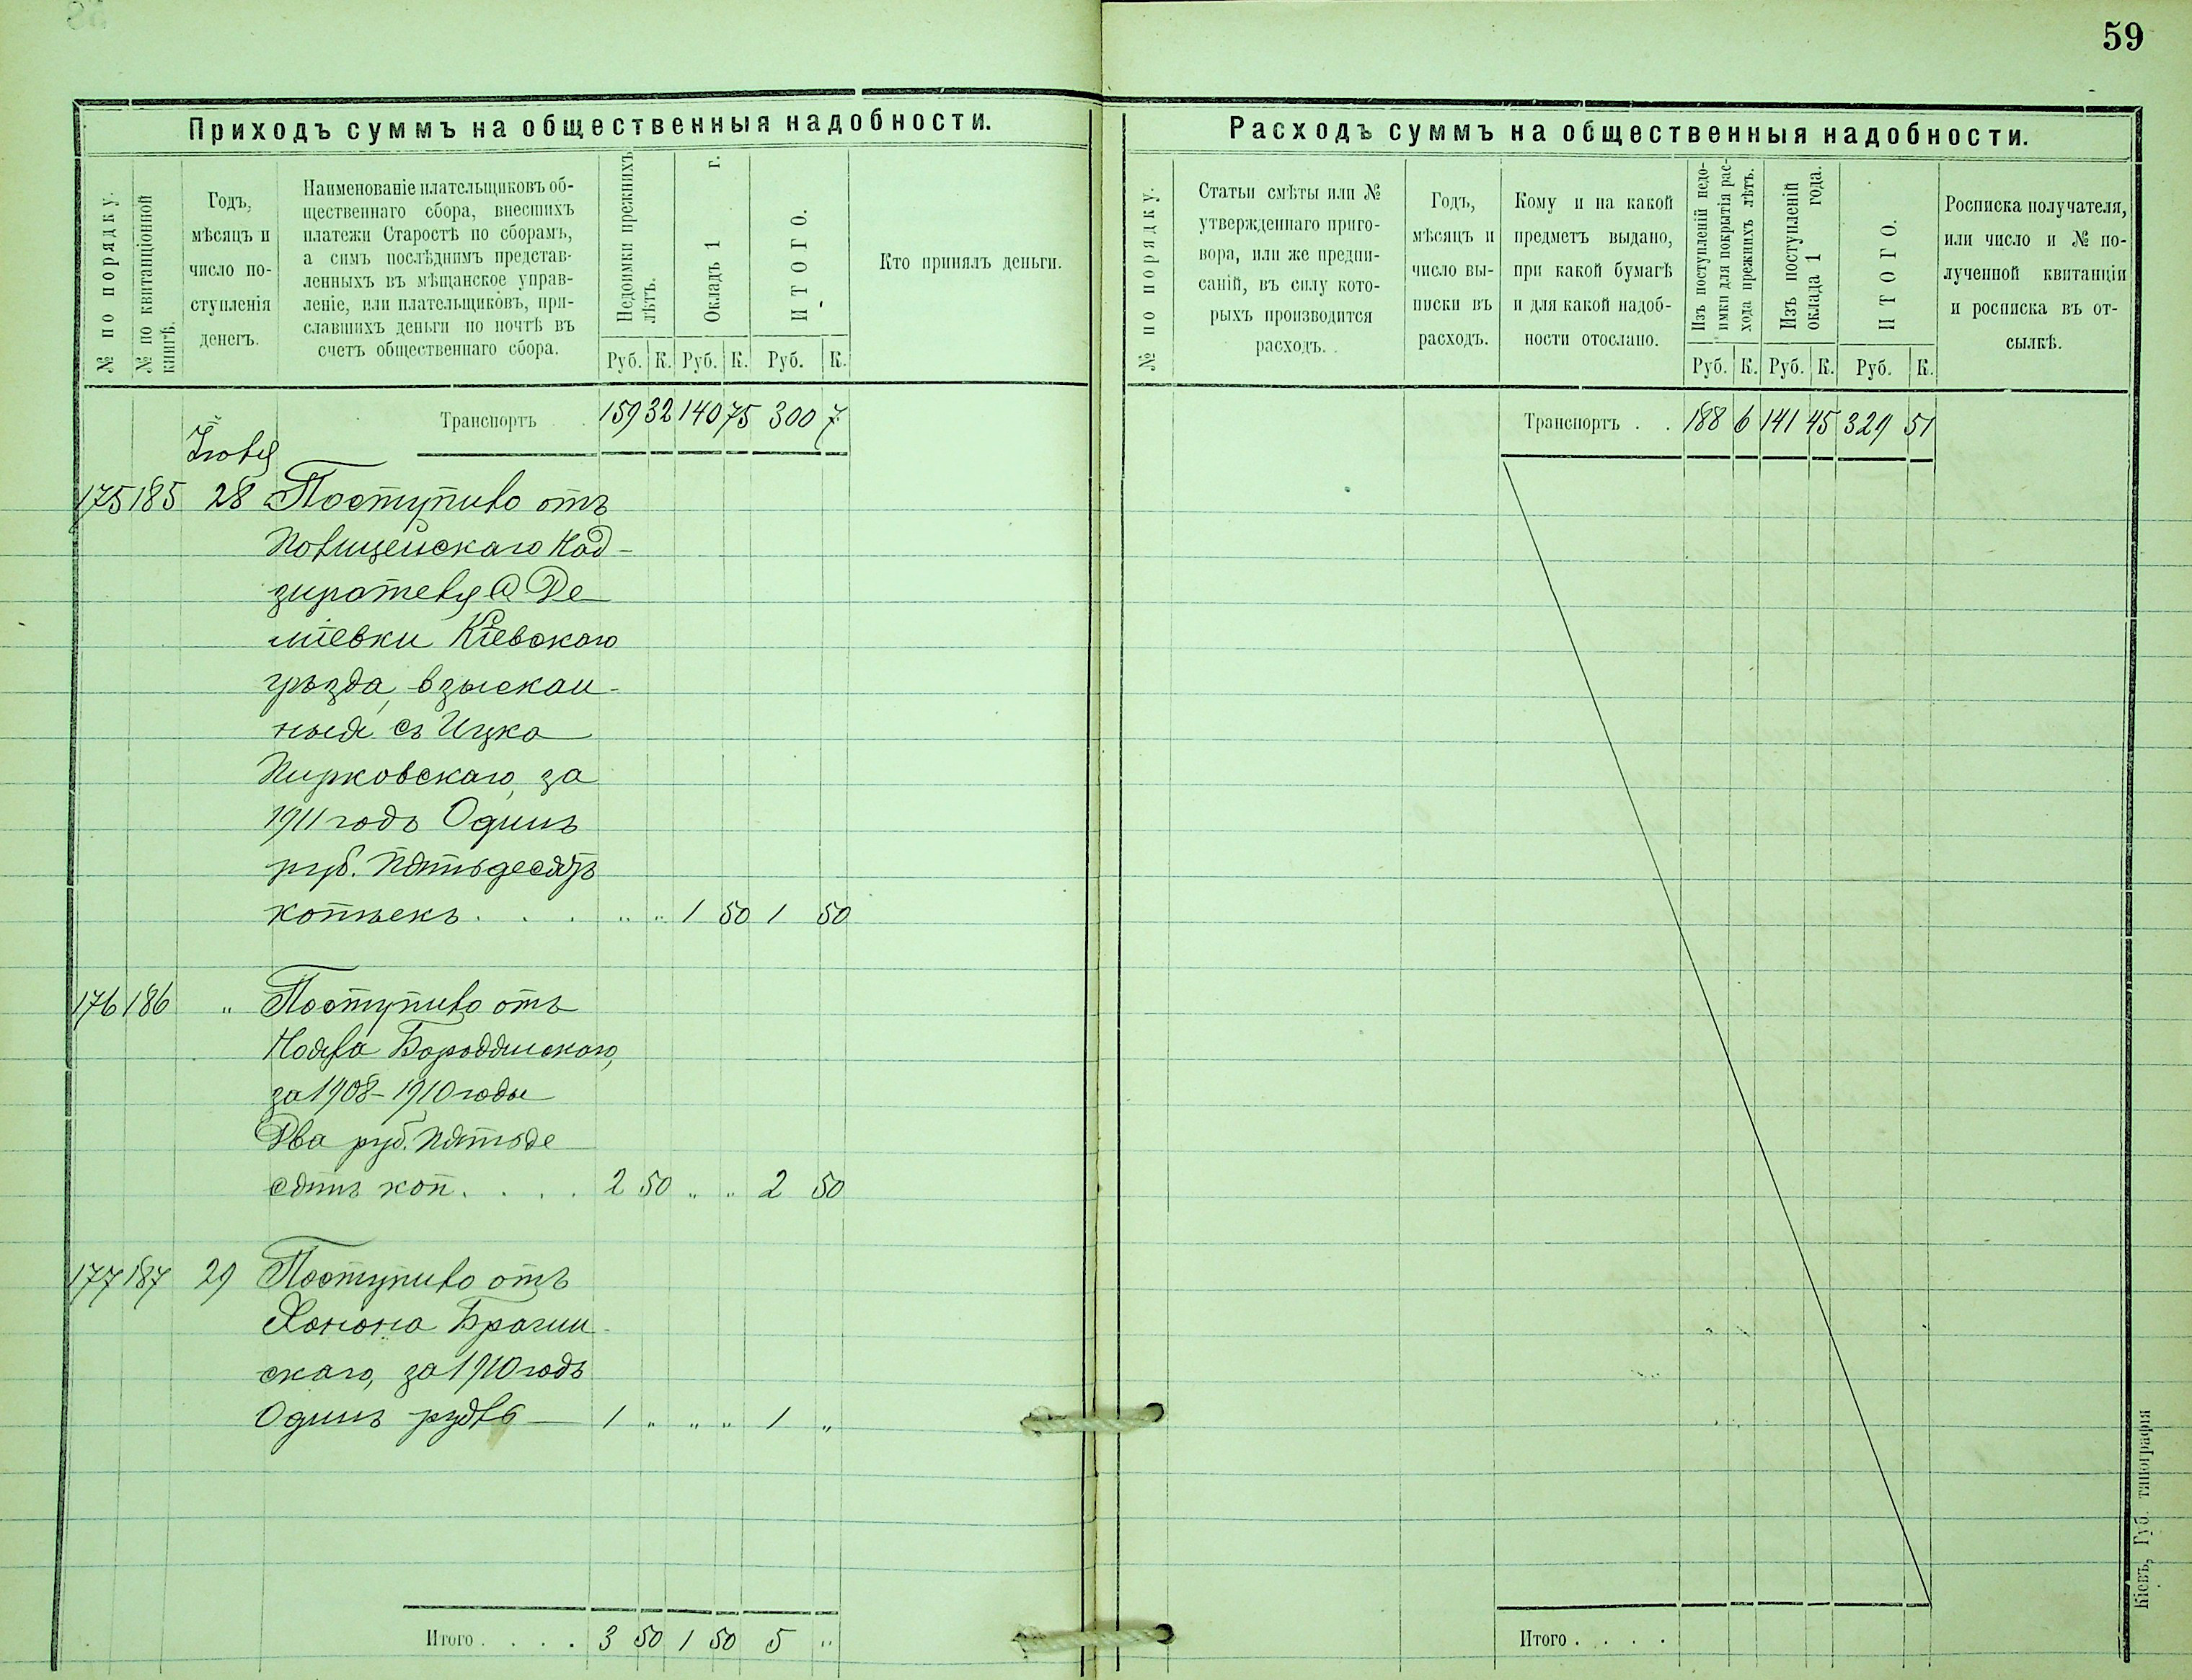 59
Приходъ суммъ на общественныя надобности.
№ по порядку.
№ по квитанціонной
книгѣ.
Годъ,
мѣсяцъ и
число по-
ступленія
денегъ.
Наименованіе плательщиковъ об-
щественнаго сбора, внесшихъ
платежи Старостѣ по сборамъ,
а симъ послѣднимъ представ-
ленныхъ въ мѣщанское управ-
леніе, или плательщиковъ, при-
славшихъ деньги по почтѣ въ
счетъ общественнаго сбора.
Недоимки прежнихъ
лѣтъ.
Окладъ 1 г.
ИТОГО.
Руб. К. Руб. К. Руб. К.
Кто принялъ деньги.
Транспортъ . . 159 32 140 75 300 7
Іюля
175 185 28 Поступило отъ
Полицейскаго Над-
зирателя с. Де-
міевки Кіевскаго
уѣзда, взыскан-
ныя съ Ицка
Пирковскаго, за
1911 годъ Одинъ
руб. пятьдесятъ
копѣекъ . . . „ „ 1 50 1 50
176 186 „ Поступило отъ
Бородянскаго,
за 1908-1910 годы
Два руб. пятьде
сятъ коп. . . . 2 50 „ „ 2 50
177 187 29 Поступило отъ
Ханона Брагин-
скаго, за 1910 годъ
Одинъ рубль — 1 „ „ „ 1 „
Итого . . . . 3 50 1 50 5 „
Расходъ суммъ на общественныя надобности.
№ по порядку.
Статьи смѣты или №
утвержденнаго приго-
вора, или же предпи-
саній, въ силу кото-
рыхъ производится
расходъ.
Годъ,
мѣсяцъ и
число вы-
писки въ
расходъ.
Кому и на какой
предметъ выдано,
при какой бумагѣ
и для какой надоб-
ности отослано.
Изъ поступленій недо-
имки для покрытія рас-
хода прежнихъ лѣтъ.
Изъ поступленій
оклада 1 года.
ИТОГО.
Руб. К. Руб. К. Руб. К.
Росписка получателя,
или число и № по-
лученной квитанціи
и росписка въ от-
сылкѣ.
Транспортъ . . 188 6 141 45 329 51
Итого . . . .
Кіевъ, Губ. типографія